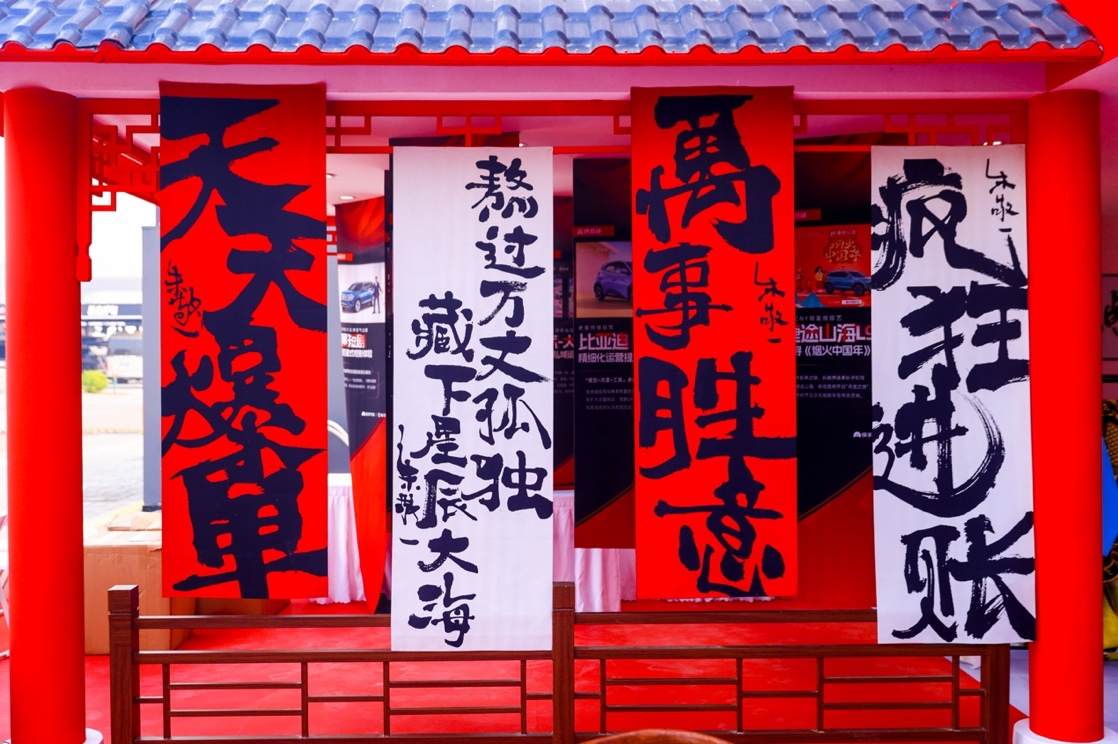 天天爆单
朱敬一
熬过万丈孤独
藏下星辰大海
朱敬一
萬事胜意
朱敬一
朱敬一
疯狂进账
比亚迪
精细化运营提
途山海L9
《烟火中国年》